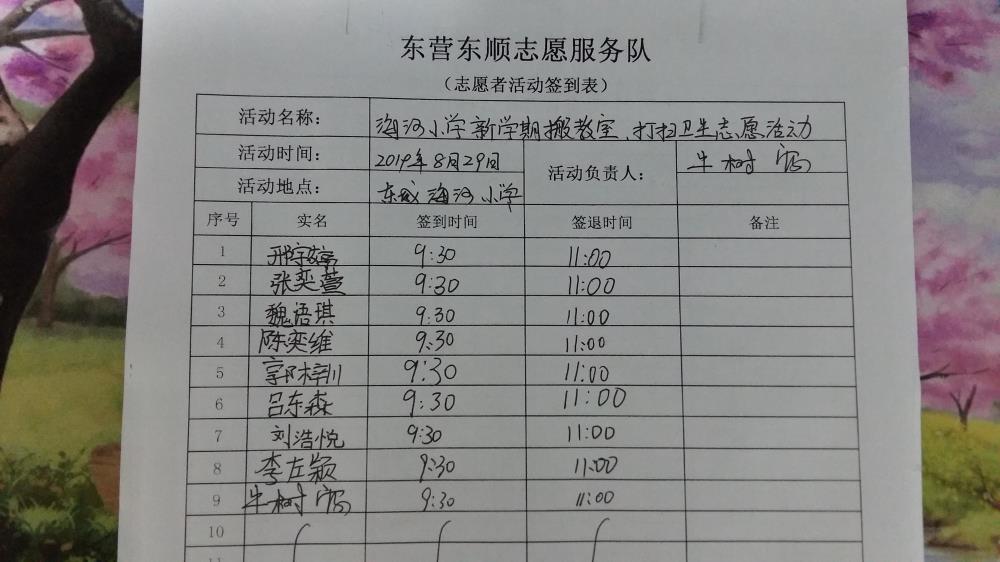 东营东顺志愿服务队
（志愿者活动签到表）
活动名称： 海河小学新学期搬教室、打扫卫生志愿活动
活动时间： 2019年8月29日 活动负责人： 牛树
活动地点： 东城海河小学
序号 实名 签到时间 签退时间 备注
1 邢宇 9:30 11:00
2 张奕萱 9:30 11:00
3 魏语琪 9:30 11:00
4 陈奕维 9:30 11:00
5 郭梓川 9:30 11:00
6 吕东森 9:30 11:00
7 刘浩悦 9:30 11:00
8 李左颖 9:30 11:00
9 牛树 9:30 11:00
10